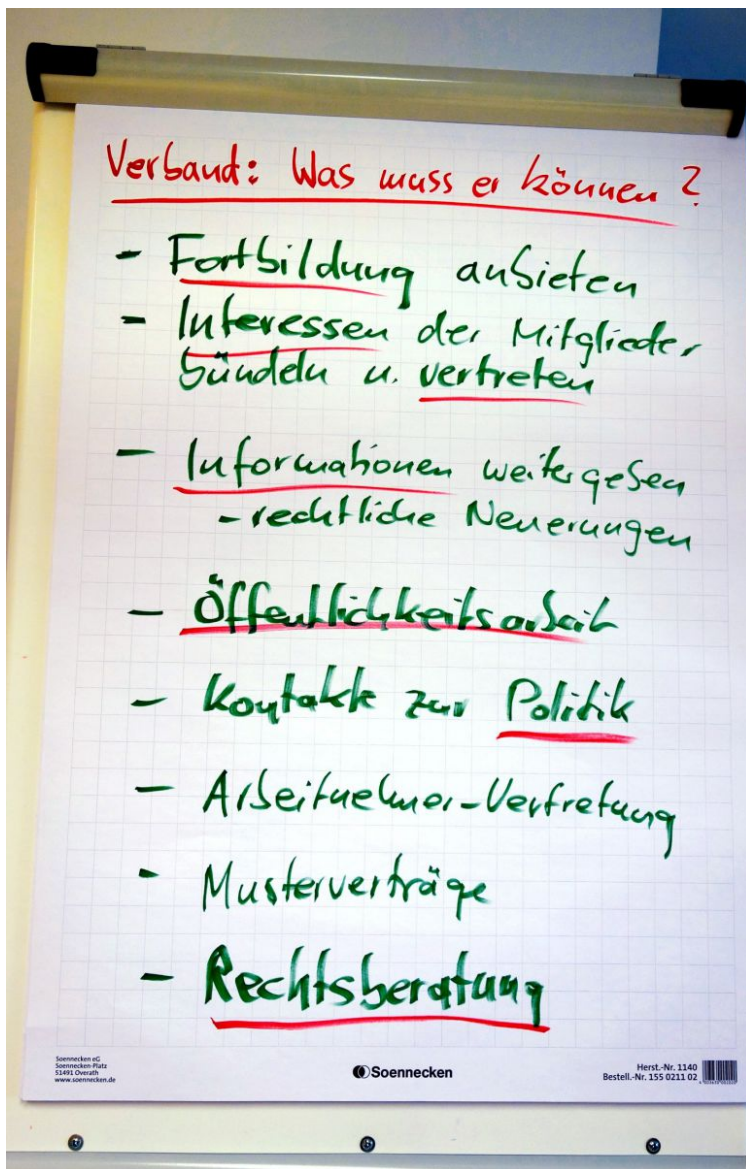 Verband: Was muss er können?
- Fortbildung anbieten
- Interessen der Mitglieder
bündeln u. vertreten
- Informationen weitergeben
- rechtliche Neuerungen
- Öffentlichkeitsarbeit
- Kontakte zur Politik
- Arbeitnehmer-Vertretung
- Musterverträge
- Rechtsberatung
Soennecken eG
Soennecken-Platz
51491 Overath
www.soennecken.de
Soennecken
Herst.-Nr. 1140
Bestell.-Nr. 155 0211 02